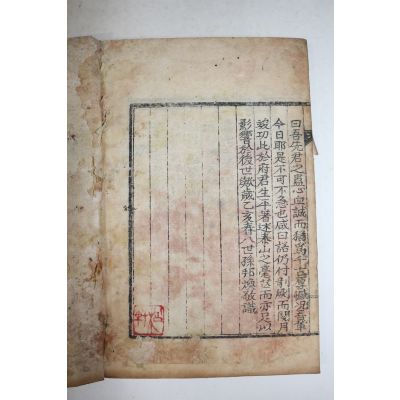 曰吾先君之盡心血誠而
今日耶是不可不急也咸曰諾仍付剞劂而閱月
竣功此於府君生平著述泰山之毫芒而亦足以
影響於後世歟歲乙亥春八世孫邦煥敬識